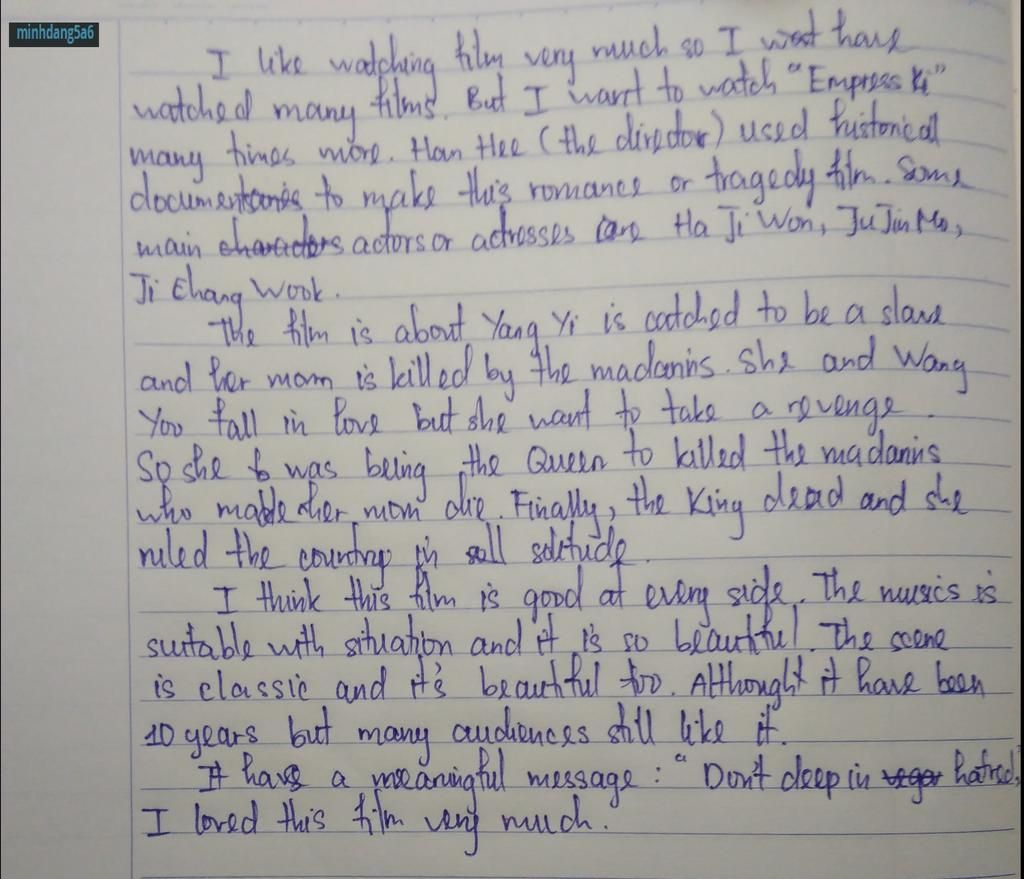 minhdang5a6
I like watching film very much so I have
watched many films. But I want to watch "Empress Ki"
many times more. Han Hee (the director) used historical
documentaries to make this romance or tragedy film. Some
main characters actors or actresses are Ha Ji Won, Ju Jin Mo,
Ji Chang Wook.
The film is about Yang Yi is catched to be a slave
and her mom is killed by the madarins. She and Wang
Yoo fall in love but she want to take a revenge.
So she was being the Queen to killed the madarins
who made her mom die. Finally, the King dead and she
ruled the country in solitude.
I think this film is good at every side. The musics is
suitable with situation and it is so beautiful. The scene
is classic and it's beautiful too. Althought it have been
10 years but many audiences still like it.
It has a meaningful message: "Don't deep in hatred."
I loved this film very much.